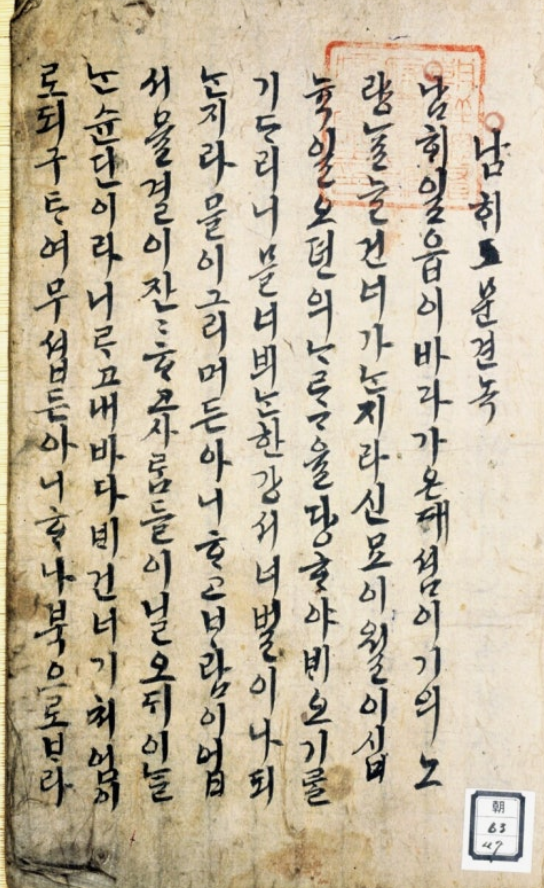 남ᄒᆡ도문견녹
남ᄒᆡ일읍이바다가온대셤이기의노
량ᄂᆞᆯ늘건너가ᄂᆞᆫ지라신묘이월이십
뉵일오뎐의ᄂᆞᄅᆞ을당ᄒᆞ야ᄇᆡ오기ᄅᆞᆯ
기ᄃᆞ리니믈너ᄇᆡᄂᆞᆫ한강셔너벌이나되
ᄂᆞᆫ지라믈이그리머든아니ᄒᆞ고ᄇᆞ람이업
서믈결이잔〻ᄒᆞ고사ᄅᆞᆷ들이닐오ᄃᆡ이ᄂᆞᆯ
ᄂᆞᆫ슌단이라니ᄅᆞ고내바다ᄇᆡ건너기처엄이
로ᄃᆡ구ᄐᆞ여무셥든아니ᄒᆞ나북으로ᄇᆞ라
朝
63
47